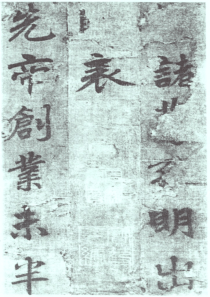 諸明出
表
先帝創業未半